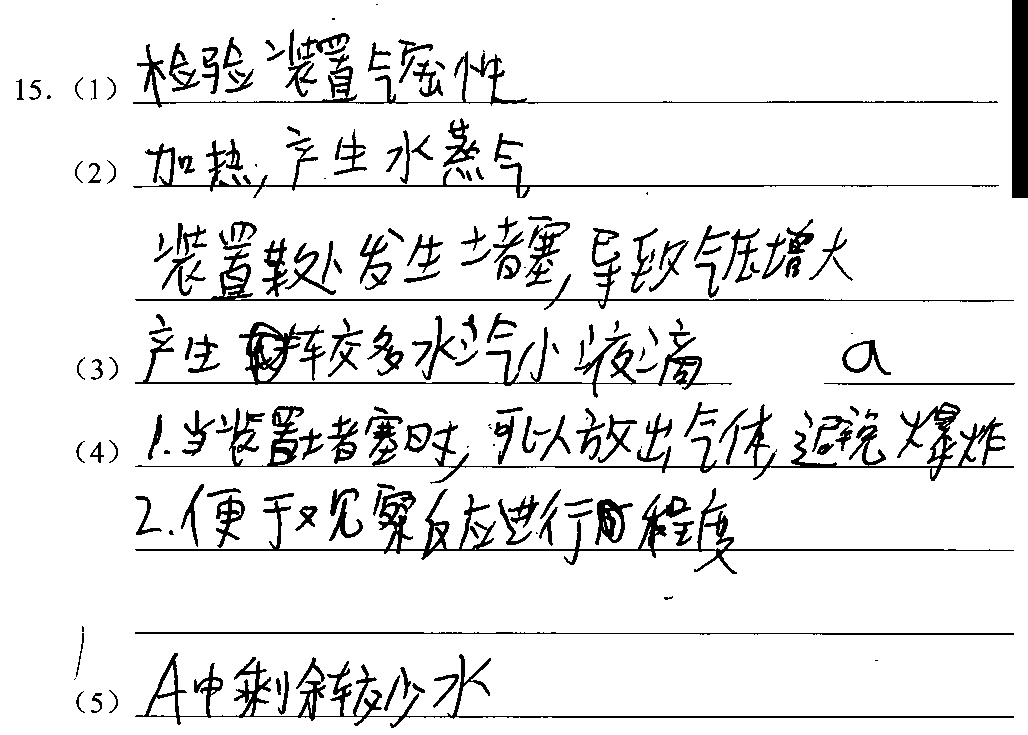 15. (1) 检验装置气密性
(2) 加热,产生水蒸气
装置某处发生堵塞,导致气压增大
(3) 产生较多水蒸气小液滴 a
(4) 1.当装置堵塞时,可以放出气体,避免爆炸
2.便于观察反应进行的程度
(5) A中剩余较少水